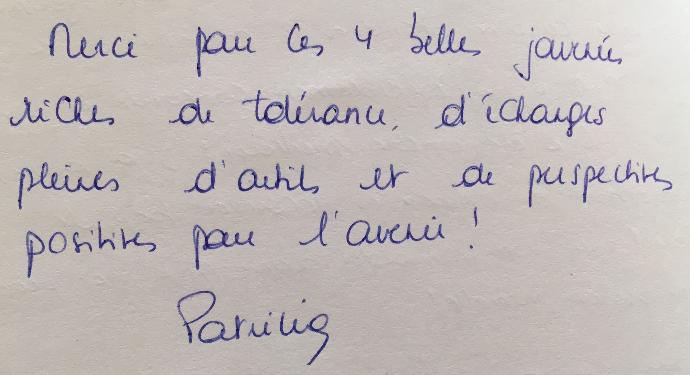 Merci pour ces 4 belles journées
riches de tolérance, d'échanges
pleines d'outils et de perspectives
positives pour l'avenir !
Patricia